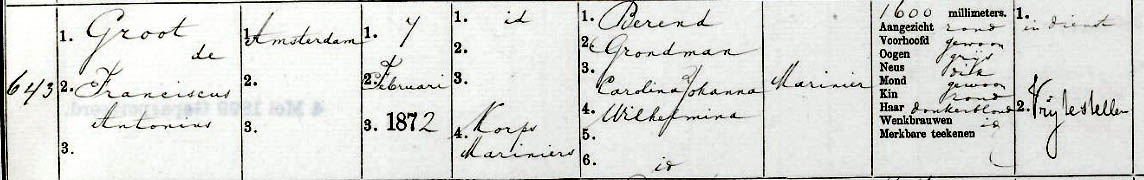 643
1. Groot
de
2. Franciscus
Antonius
3.
1. Amsterdam
2.
3.
1. 7
2. Februari
3. 1872
1. id
2.
3.
4. Korps
Mariniers
1. Berend
2. Grondman
3.
Carolina Johanna
4. Wilhelmina
5.
6. id
Marinier
1600 millimeters.
Aangezicht rond
Voorhoofd gewoon
Oogen grijs
Neus dik
Mond gewoon
Kin rond
Haar donkerblond
Wenkbrauwen id
Merkbare teekenen
1.
in dienst
2. Vrij te stellen